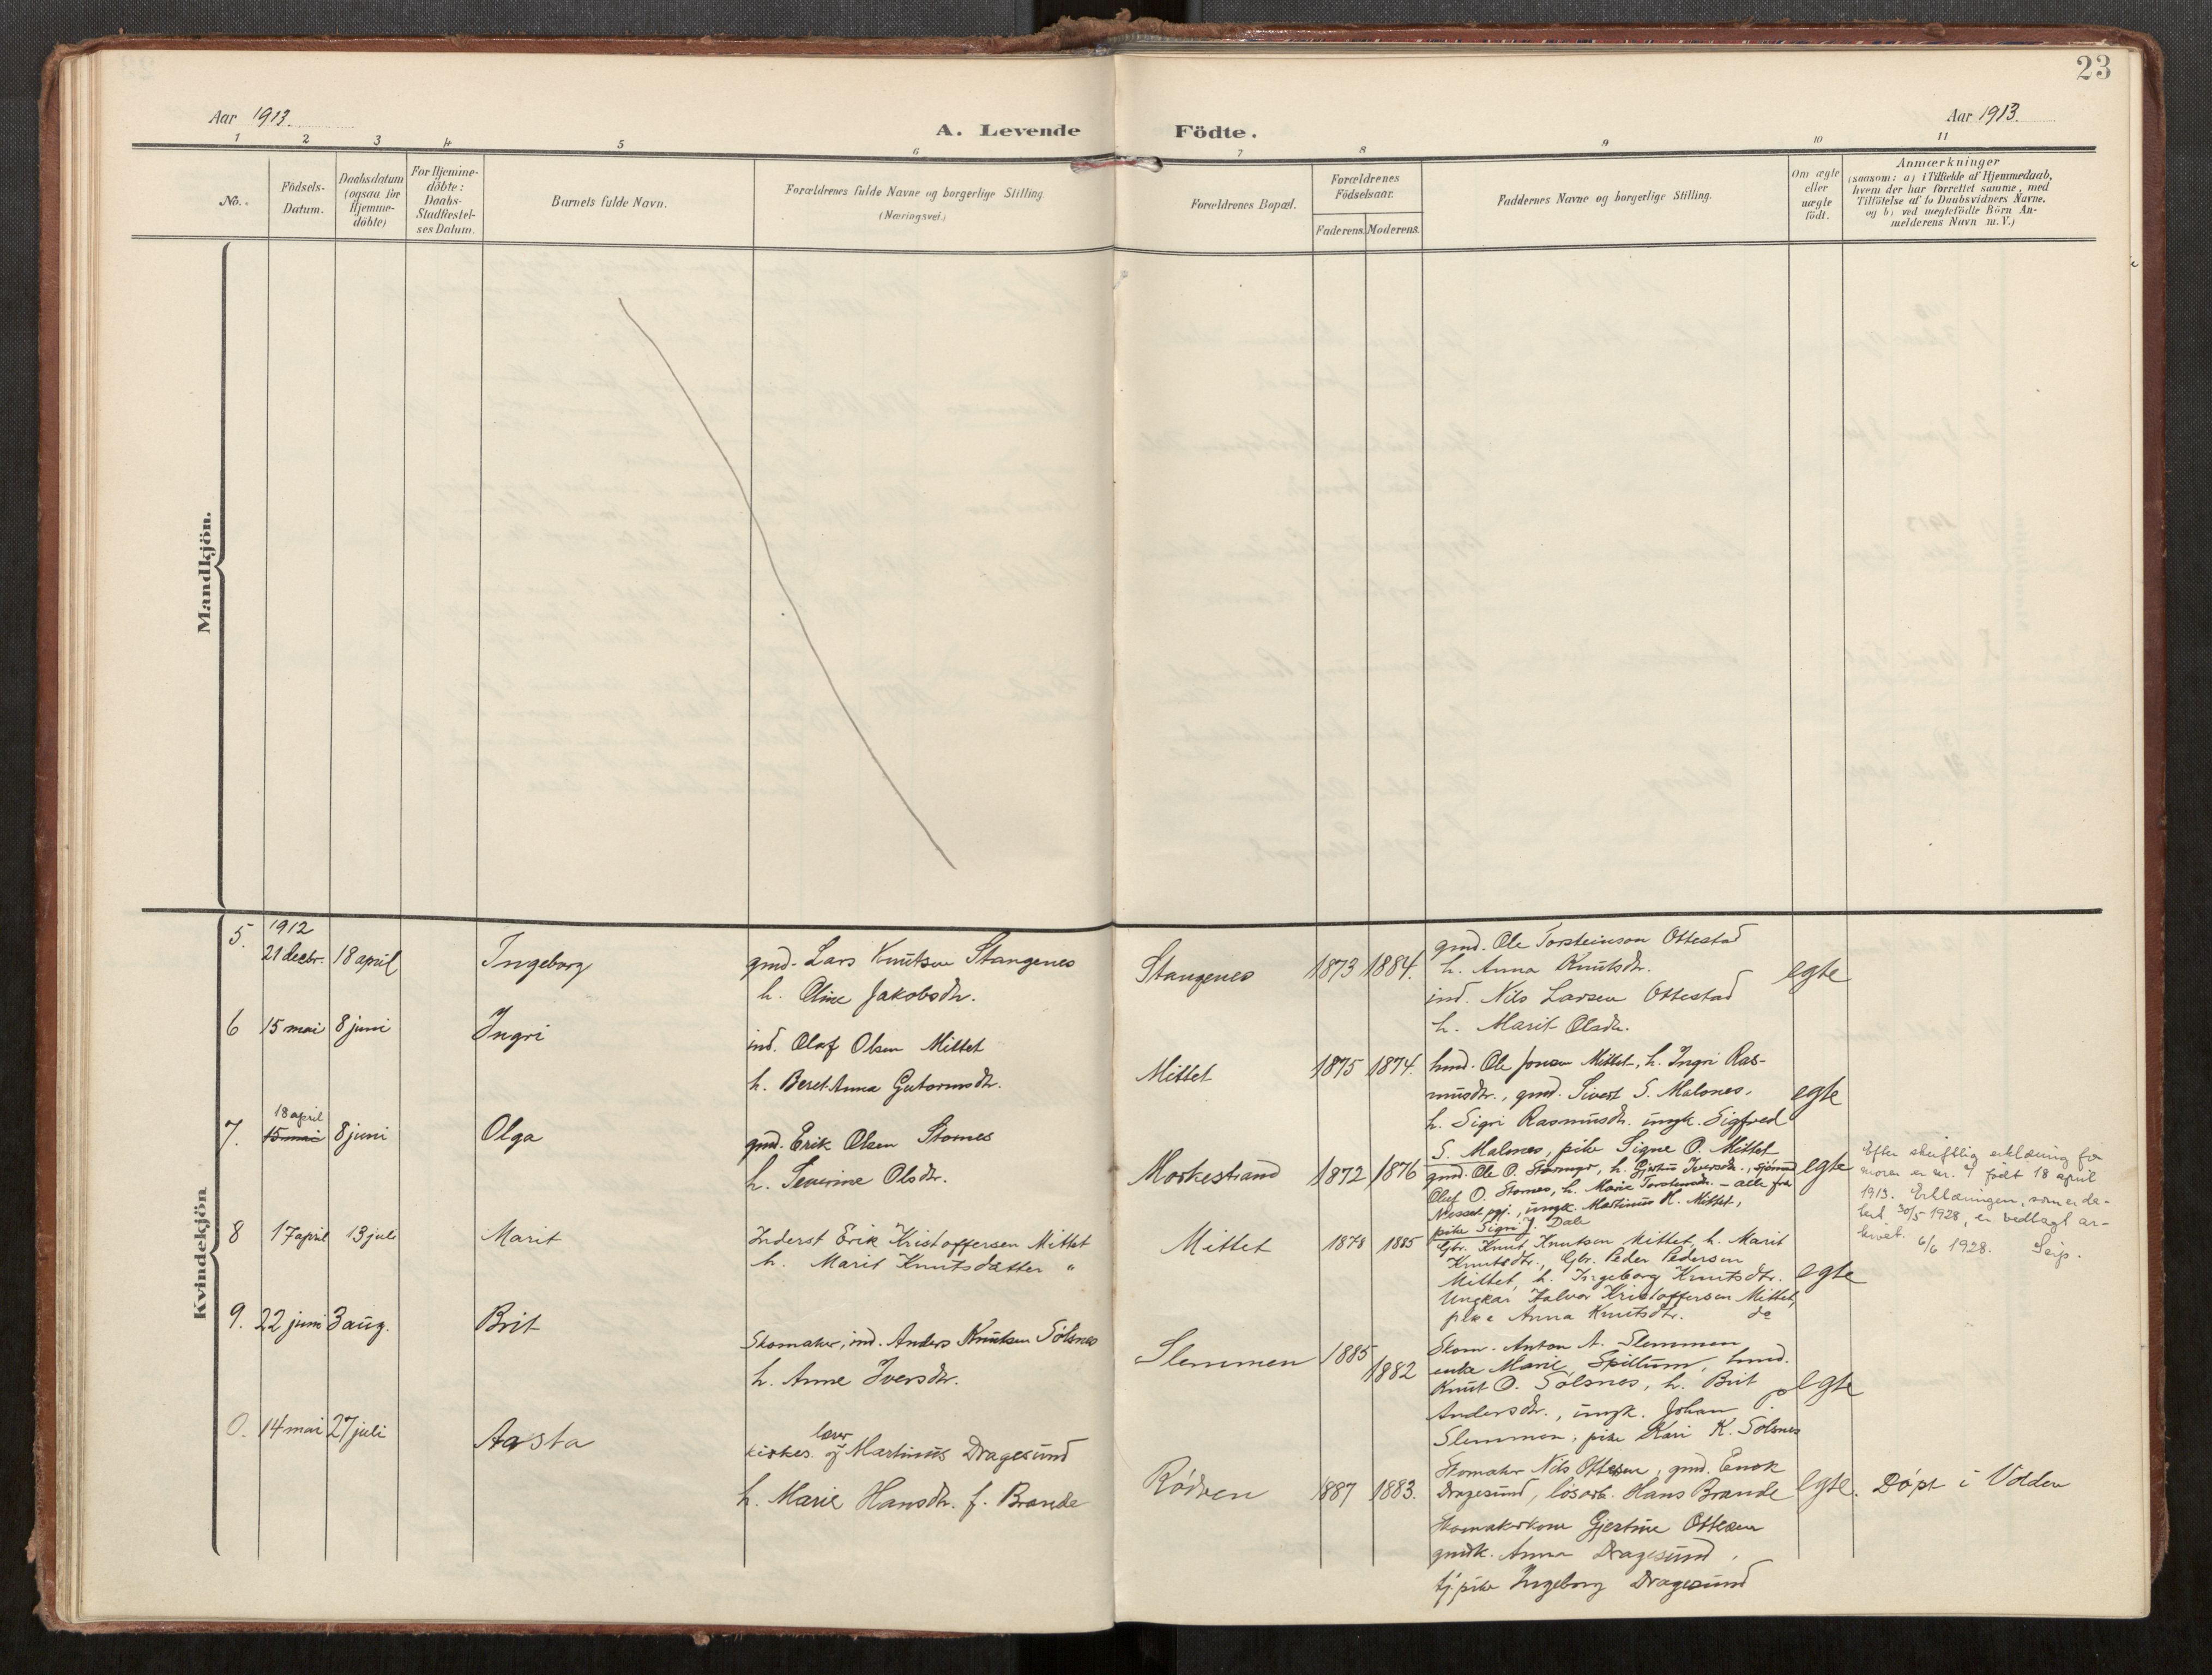 23
Aar 1913.
A. Levende Födte.
Aar 1913.
1 2 3 4 5 6 7 8 9 10 11
No.
Födsels-Datum.
Daabsdatum (ogsaa for Hjemme-döbte)
For Hjemme-döbte: Daabs-Stadfæstel-ses Datum.
Barnets fulde Navn.
Forældrenes fulde Navne og borgerlige Stilling
(Næringsvei.)
Forældrenes Bopæl.
Forældrenes Födselsaar.
Faderens. Moderens.
Faddernes Navne og borgerlige Stilling.
Om ægte eller uægte födt.
Anmærkninger
(saasom: a) i Tilfælde af Hjemmedaab,
hvem der har forrettet samme, med
Tilföielse af to Daabsvidners Navne.
og b) ved uægtefödte Börn An-
melderens Navn m. V.)
Mandkjön.
Kvindekjön
5. 1912
21 decbr. 18 april Ingeborg
gmd. Lars Knutsen Stangenes
h. Oline Jakobsdtr.
Stangenes 1873 1884.
gmd. Ole Torsteinson Ottestad
h. Anna Knutsdtr.
ind. Nils Larsen Ottestad
h. Marit Olsdtr.
egte
6 15 mai 8 juni Ingri
ind. Olaf Olsen Mittet
h. Beret Anna Gutormsdtr.
Mittet 1875 1874.
hmd. Ole Jonsen Mittet, h. Ingri Ras-
musdtr., gmd. Sivert S. Malones,
h. Sigri Rasmusdtr. ungk. Sigfred
S. Malmes, pike Signe O. Mittet
egte
7. 18 april
15 mai 8 juni Olga
gmd. Erik Olsen Stomes
h. Severine Olsdtr.
Morkestrand 1872 1876
gmd. Ole O. , h. Gjertine Iversdtr.,
Oluf O. Stomes, h. Marie Torsteinsdtr. - alle fra
Nesset pgj., ungk. Martinus H. Mittet,
pike Signi J. Dale
egte
Efter skriftlig erklæring fra
moren er nr. 7 født 18 april
1913. Erklæringen, som er da-
tert 30/5 1928, er vedlagt ar-
kivet. 6/6 1928. Seip.
8 17 april 13 juli Marit
Inderst Erik Kristoffersen Mittet
h. Marit Knutsdatter "
Mittet 1878 1885
Gbr. Knut Knutsen Mittet, h. Marit
Knutsdtr., Gbr. Peder Pedersen
Mittet, h. Ingeborg Knutsdtr.
Ungkar Halvor Kristoffersen Mittet,
pike Anna Knutsdtr. do
egte
9. 22 juni 3 aug. Brit
Skomaker, ind. Anders Knutsen Sölsnes
h. Anne Iversdtr.
Slemmen 1885 1882
Skom. Anton A. Slemmen
enke Marie Spillum, hmd.
Knut O. Sölsnes, h. Brit
Andersdtr., ungk. Johan
Slemmen, pike Kari K. Sölsnes
egte
0. 14 mai 27 juli Aasta
kirkes. og lærer Martinus Dragesund
h. Marie Hansdtr. f. Brande
Rödven 1887 1883.
Skomaker Nils Ottesen, gmd. Enok
Dragesund, lösarb. Hans Brande
Skomakerkone Gjertine Ottesen
gmdk. Anna Dragesund,
tj.pike Ingeborg Dragesund
egte. Döpt i Volden